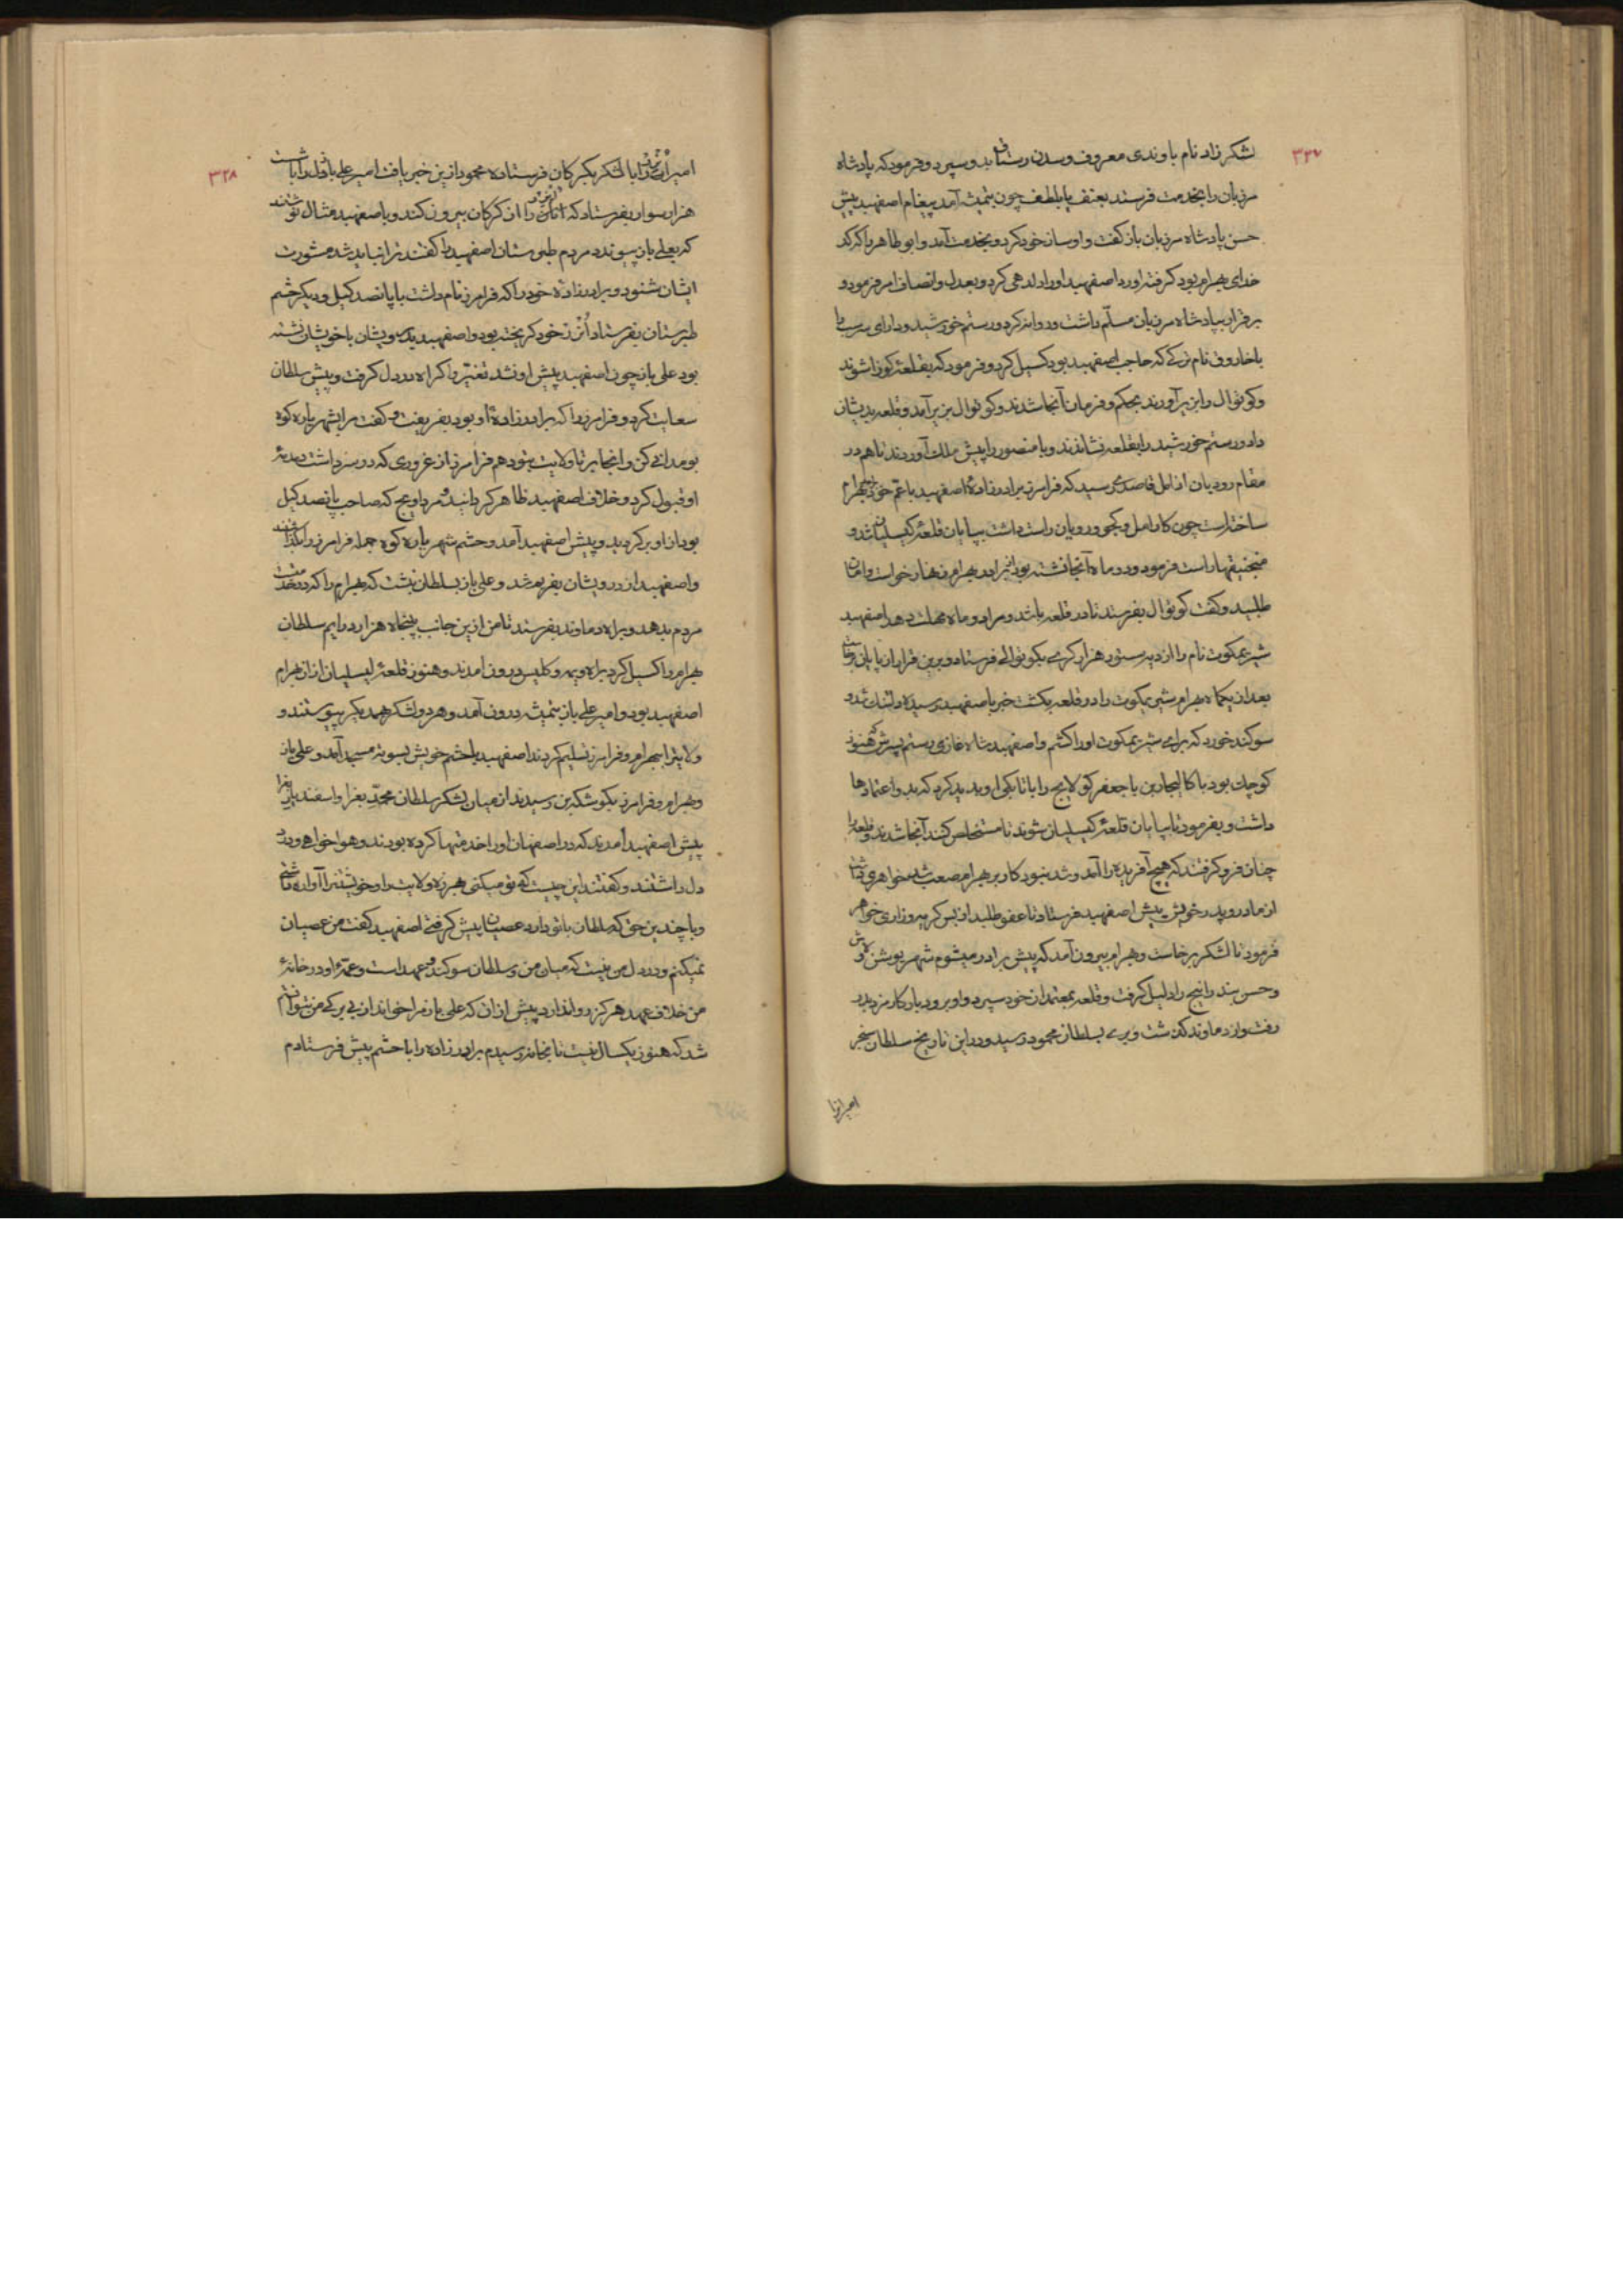 ۳۲۷
لشکر زاد نام باوندی معروف و سدن رستاق بدو سپرد و فرمود که پادشاه
مرزبان را بخدمت فرستد بعنف یا بلطف چون بتمیشه آمد پیغام اصفهبد پیش
حسن پادشاه مرزبان باز گفت و او ساز خود کرد و بخدمت آمد و ابو طاهر
خدای بهرام بود گرفته آورد اصفهبد او را دلدهی کرد و بعدل و انصاف امر فرمود و
برقرار بپادشاه مرزبان مسلّم داشت و روانه کرد و رستم خورشید و دارای
با خاروف نام ترکی که حاجب اصفهبد بود کسیل کرد و فرمود که بقلعهٔ کوزا شوند
و کوتوال را بزیر آورند بحکم و فرمان آنجا شدند و کوتوال بزیر آمد و قلعه بدیشان
داد و رستم خورشید را بقلعه نشاندند و با منصور را پیش ملک آوردند تا هم در
مقام رودبان از آمل قاصدی رسید که فرامرز برادرزادهٔ اصفهبد با عمّ خویش بهرام
ساخته است چون کار آمل و کجو و رویان راست داشت بپایان قلعهٔ کیسلیان شد و
منجنیقها راست فرمود و دو ماه آنجا نشسته بود بهرام زنهار خواست و امان
طلبید و گفت کوتوال بفرستد تا در قلعه باشد و مرا دو ماه مهلت دهد اصفهبد
شیر بمکوت نام را از دیه ستور هزار کری بکوتوالی فرستاد و برین قرار از پایان برخاست
بعد از یکماه بهرام شیر بمکوت را در قلعه بکشت خبر باصفهبد رسید دلتنک شد و
سوکند خورد که برای شیر بمکوت او را کشم و اصفهبد شاه غازی رستم پسرش هنوز
کوچک بود با کالیجار بن با جعفر کولایج را باتابکی او پدید کرد که بدو اعتمادها
داشت و بفرمود تا بپایان قلعهٔ کیسلیان شوند تا مستخلص کنند آنجا شدند و قلعه را
چنان فرو گرفتند که هیچ آفریده را آمد و شد نبود کار بر بهرام صعب شد خواهری داشت
از مادر و پدر خویش پیش اصفهبد فرستاد تا عفو طلبید از بس گریه و زاری خواهر
فرمود تا لشکر برخاست و بهرام بیرون آمد که پیش برادر میشوم شهریوشن
و حسن بندرانیج را دلیل گرفت و قلعه بمعتمدان خود سپرد و او برودبار کارمزد بدر
رفت و از دماوند گذشت و بری بسلطان محمود رسید و درین تاریخ سلطان سنجر
امیر انرا
۳۲۸
امیر را با لشکر بگرگان فرستاده محمود ازین خبر یافت امیر علی بار را با شست
هزار سوار بفرستاد که را از گرگان بیرون کند و باصفهبد مثال نوشتند
که بعلی بار پیوندد مردم طبرستان اصفهبد را گفتند ترا نباید شد مشورت
ایشان شنود و برادرزادهٔ خود را که فرامرز نام داشت با پانصد کیل و دیگر حشم
طبرستان بفرستاد از خود گریخته بود و اصفهبد بدرویشان با خویشان نشسته
بود علی بار چون اصفهبد پیش او نشد تغیّر و اکراه در دل گرفت و پیش سلطان
سعایت کرد و فرامرز را که برادرزادهٔ او بود بفریفت و گفت مرا بشهریاره کوه
بومدانی کن و آنجا بر تا ولایت بتو دهم فرامرز از غروری که در سر داشت دمدمهٔ
او قبول کرد و خلاف اصفهبد ظاهر گردانید مرداویج که صاحب پانصد کیل
بود از او برگردید و پیش اصفهبد آمد و حشم شهریاره کوه جمله فرامرز را بگذاشتند
و اصفهبد از درویشان بفریم شد و علی بار بسلطان نبشت که بهرام را که در خدمتست
مردم بدهد و براه دماوند بفرستد تا من ازین جانب پنجاه هزار درآیم سلطان
بهرام را کسیل کرد براه ویمه و کلیس درون آمدند و هنوز قلعهٔ کیسلیان از آن بهرام
اصفهبد بود و امیر علی بار بتمیشه درون آمد و هر دو لشکر بهمدیگر پیوستند و
ولایت را ببهرام و فرامرز تسلیم کردند اصفهبد با حشم خویش بسوته مسجد آمد و علی بار
و بهرام و فرامرز بکوشکه بن رسیدند از میان لشکر سلطان محمّد بغرا و اسفندیار بغرا
پیش اصفهبد آمدند که در اصفهان او را خدمتها کرده بودند و هواخواهی او در
دل داشتند و گفتند این چیست که تو میکنی هرزه ولایت را و خویشتن را آواره
و با چندین حق که سلطان با تو دارد عصیان پیش گرفتی اصفهبد گفت من عصیان
نمیکنم و در دل من نیست که میان من و سلطان سوگند و عهد است و عمهٔ او در خانهٔ
من خلاف عهد هرگز روا ندارد پیش از آن که علی بار مرا خواند از بی برکی من نتوانستم
شد که هنوز یکسال نیست تا بخانه رسیدم برادرزاده را با حشم پیش فرستادم